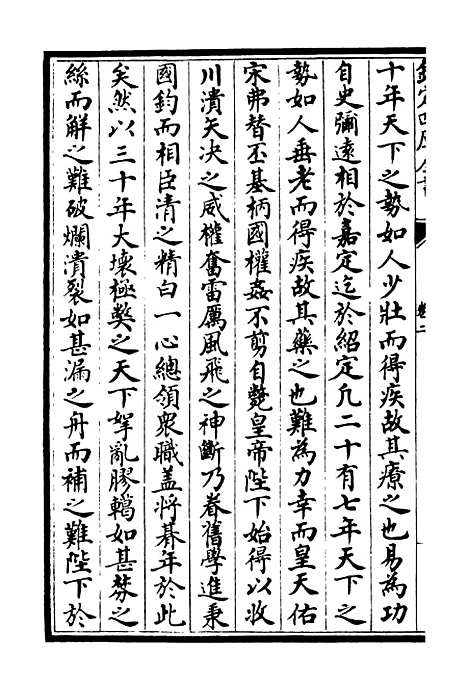 欽定四庫全書
卷二
十年天下之勢如人少壯而得疾故其療之也易為功
自史彌遠相於嘉定迄於紹定凡二十有七年天下之
勢如人垂老而得疾故其藥之也難為力幸而皇天佑
宋弗替丕基柄國權姦不剪自斃皇帝陛下始得以收
川潰天決之威權奮雷厲風飛之神斷乃眷舊學進秉
國鈞而相臣清之精白一心總領衆職蓋將朞年於此
矣然以三十年大壞極弊之天下挐亂膠轕如甚棼之
絲而解之難破爛潰裂如甚漏之舟而補之難陛下於